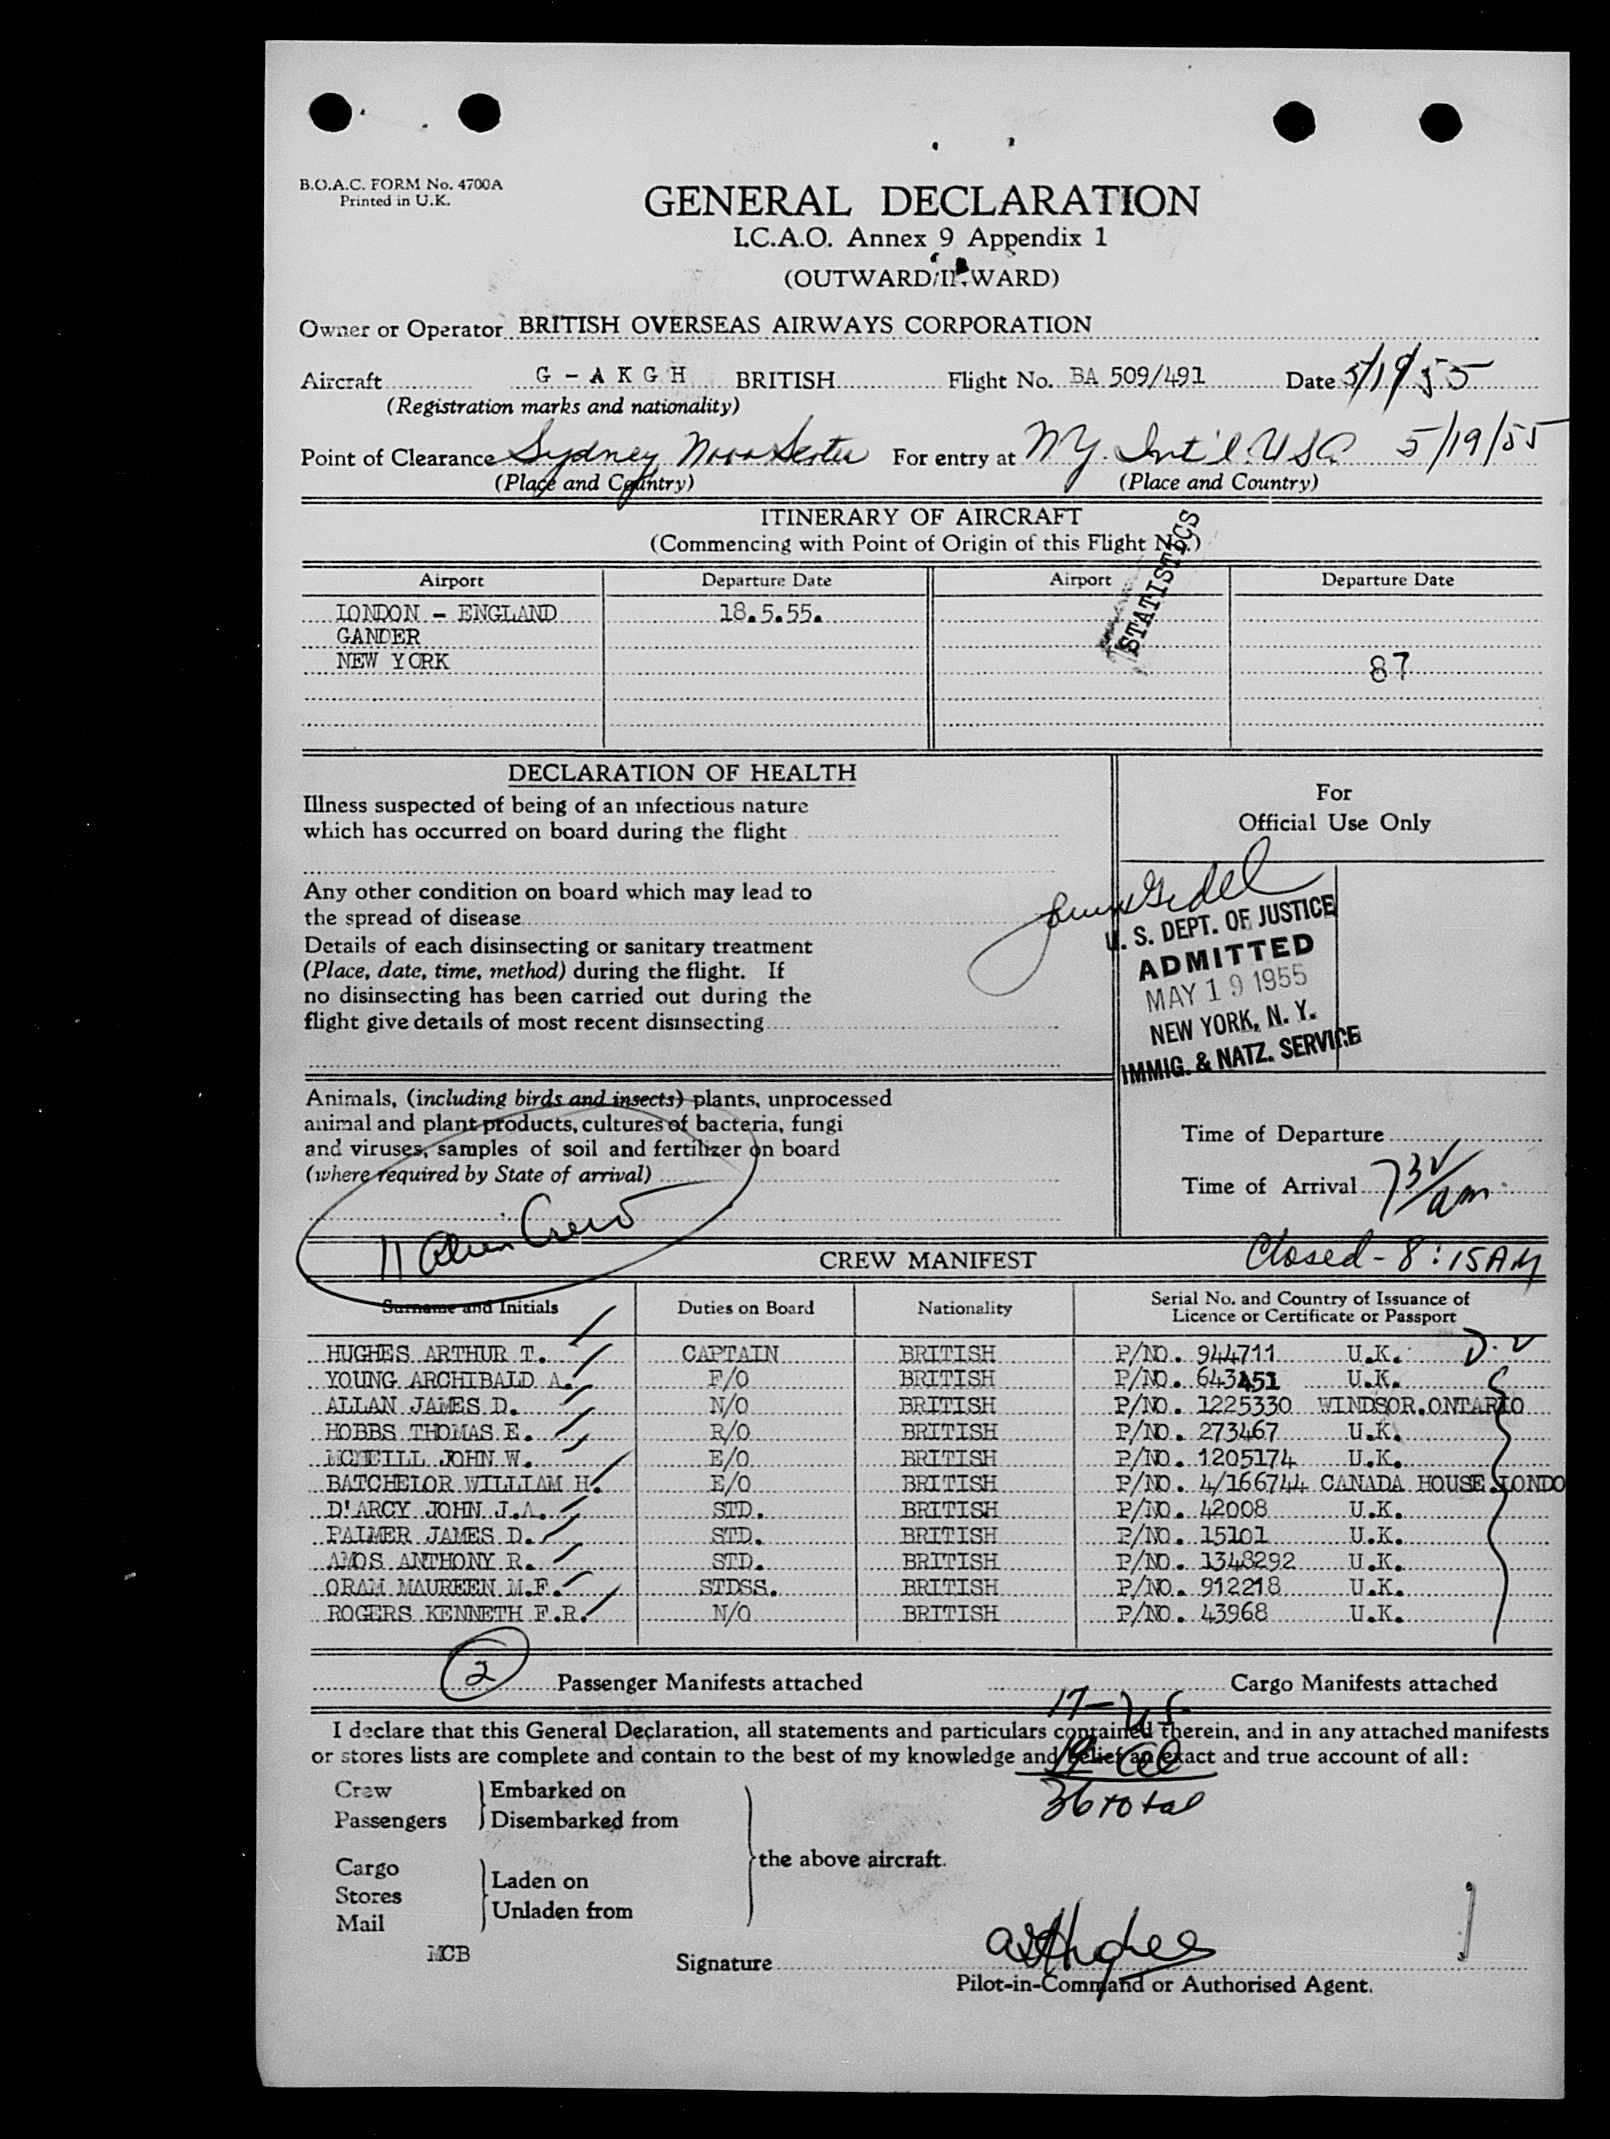 B.O.A.C. FORM No. 4700A
Printed in U.K.
GENERAL DECLARATION
I.C.A.O. Annex 9 Appendix 1
(OUTWARD/INWARD)
Owner or Operator BRITISH OVERSEAS AIRWAYS CORPORATION
Aircraft G - A K G H BRITISH Flight No. BA 509/491 Date 5/19/55
(Registration marks and nationality)
Point of Clearance Sydney Nova Scotia For entry at N.Y. Int'l. USA 5/19/55
(Place and Country) (Place and Country)
ITINERARY OF AIRCRAFT
(Commencing with Point of Origin of this Flight No.)
STATISTICS
Airport Departure Date Airport Departure Date
LONDON - ENGLAND 18.5.55.
GANDER
NEW YORK 87
DECLARATION OF HEALTH
Illness suspected of being of an infectious nature
which has occurred on board during the flight
Any other condition on board which may lead to
the spread of disease
Details of each disinsecting or sanitary treatment
(Place, date, time, method) during the flight. If
no disinsecting has been carried out during the
flight give details of most recent disinsecting
For
Official Use Only
U. S. DEPT. OF JUSTICE
ADMITTED
MAY 19 1955
NEW YORK, N. Y.
IMMIG. & NATZ. SERVICE
Animals, (including birds and insects) plants, unprocessed
animal and plant products, cultures of bacteria, fungi
and viruses, samples of soil and fertilizer on board
(where required by State of arrival)
Time of Departure
Time of Arrival 7 am
11 Alien Crew
CREW MANIFEST
Closed - 8:15 AM
Surname and Initials Duties on Board Nationality Serial No. and Country of Issuance of
Licence or Certificate or Passport
HUGHES ARTHUR T. CAPTAIN BRITISH P/NO. 944711 U.K.
YOUNG ARCHIBALD A. F/O BRITISH P/NO. 643451 U.K.
ALLAN JAMES D. N/O BRITISH P/NO. 1225330 WINDSOR.ONTARIO
HOBBS THOMAS E. R/O BRITISH P/NO. 273467 U.K.
MCNEILL JOHN W. E/O BRITISH P/NO. 1205174 U.K.
BATCHELOR WILLIAM H. E/O BRITISH P/NO. 4/166744 CANADA HOUSE.LONDO
D'ARCY JOHN J.A. STD. BRITISH P/NO. 42008 U.K.
PALMER JAMES D. STD. BRITISH P/NO. 15101 U.K.
AMOS ANTHONY R. STD. BRITISH P/NO. 1348292 U.K.
ORAM MAUREEN M.F. STDSS. BRITISH P/NO. 912218 U.K.
ROGERS KENNETH F.R. N/O BRITISH P/NO. 43968 U.K.
2 Passenger Manifests attached Cargo Manifests attached
17 - US
I declare that this General Declaration, all statements and particulars contained therein, and in any attached manifests
or stores lists are complete and contain to the best of my knowledge and belief an exact and true account of all:
19
36 total
Crew
Passengers
Embarked on
Disembarked from
Cargo
Stores
Mail
Laden on
Unladen from
the above aircraft.
MCB
Signature A T Hughes
Pilot-in-Command or Authorised Agent.